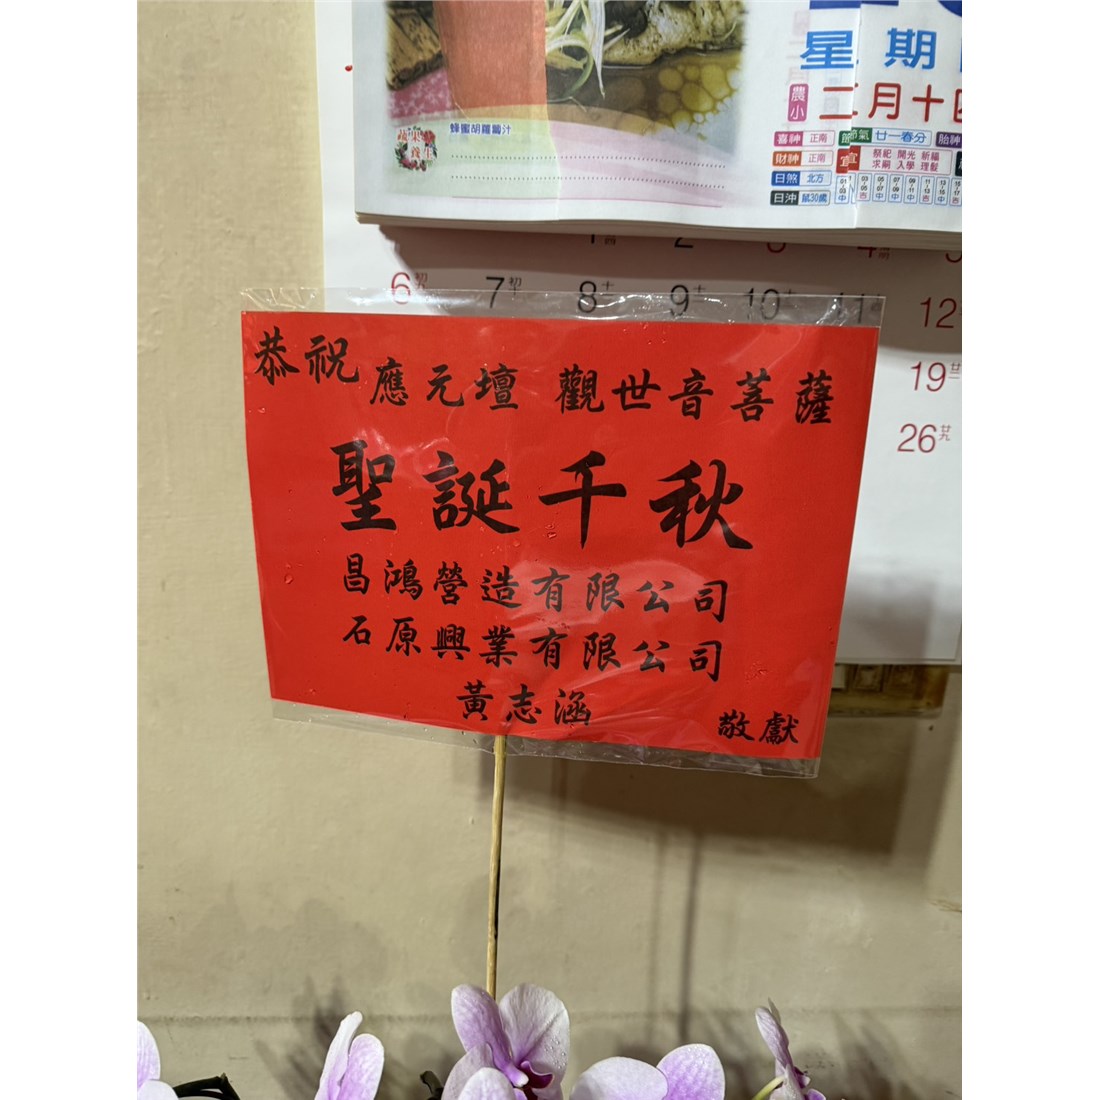 星期
農小 二月十四
喜神 正南 節氣 廿一春分 胎神
財神 正南 宜 祭祀 開光 祈福
求嗣 入學 理髮
日煞 北方
日沖 鼠30歲
蜂蜜胡蘿蔔汁
蔬果養生
1 2 3 4 5
6 7 8 9 10 11 12
19
26
恭祝 應元壇 觀世音菩薩
聖誕千秋
昌鴻營造有限公司
石原興業有限公司
黃志涵
敬獻